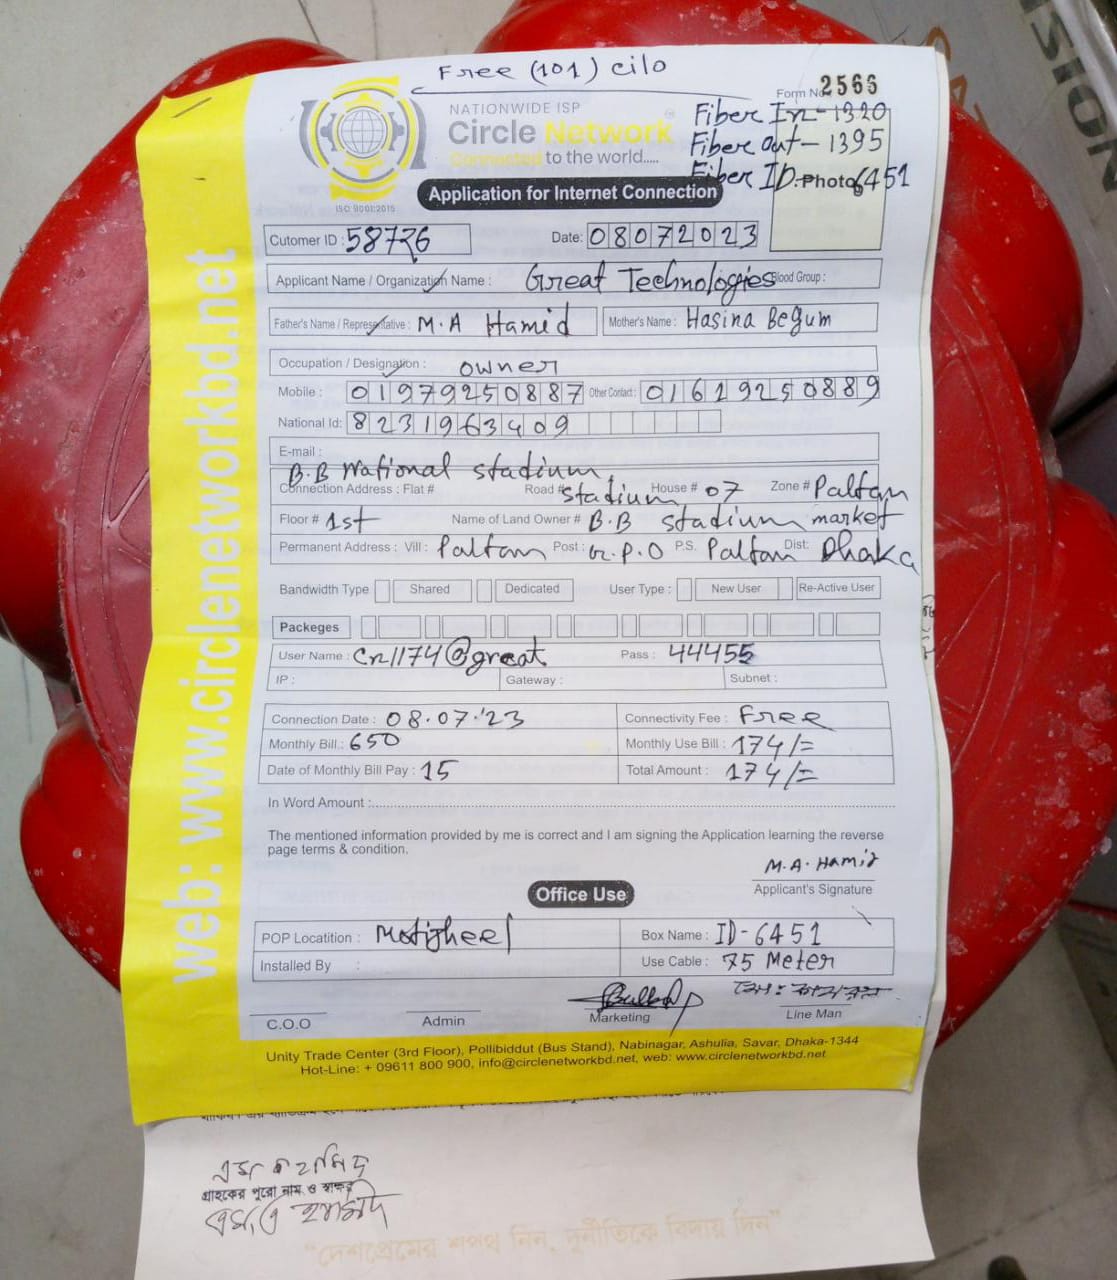 Free (101) cilo
Form No. 2566
NATIONWIDE ISP
Circle Network
Connected to the world.....
ISO 9001:2015
Fiber In - 1320
Fiber Out - 1395
Fiber ID - 6451
Photo
Application for Internet Connection
Cutomer ID : 58726 Date: 08072023
Applicant Name / Organization Name : Great Technologies Blood Group :
Father's Name / Representative : M.A Hamid Mother's Name : Hasina Begum
Occupation / Designation : owner
Mobile : 01979250887 Other Contact : 01619250889
National Id: 8231963409
E-mail :
B.B National stadium
Connection Address : Flat # Road # stadium House # 07 Zone # Paltan
Floor # 1st Name of Land Owner # B.B stadium market
Permanent Address : Vill : Paltan Post : G.P.O P.S. Paltan Dist: Dhaka
Bandwidth Type Shared Dedicated User Type : New User Re-Active User
Packeges
User Name : Cn1174@great Pass : 44455
IP : Gateway : Subnet :
Connection Date : 08.07.'23 Connectivity Fee : Free
Monthly Bill.: 650 Monthly Use Bill : 174/=
Date of Monthly Bill Pay : 15 Total Amount : 174/=
In Word Amount :
The mentioned information provided by me is correct and I am signing the Application learning the reverse
page terms & condition.
M.A. Hamid
Applicant's Signature
Office Use
POP Locatition : Motijheel Box Name : ID-6451
Installed By : Use Cable : 75 Meter
C.O.O Admin Marketing Line Man
Unity Trade Center (3rd Floor), Pollibiddut (Bus Stand), Nabinagar, Ashulia, Savar, Dhaka-1344
Hot-Line: + 09611 800 900, info@circlenetworkbd.net, web: www.circlenetworkbd.net
web: www.circlenetworkbd.net
এম এ হামিদ
গ্রাহকের পুরো নাম ও স্বাক্ষর
এম এ হামিদ
"দেশপ্রেমের শপথ নিন, দুর্নীতিকে বিদায় দিন"